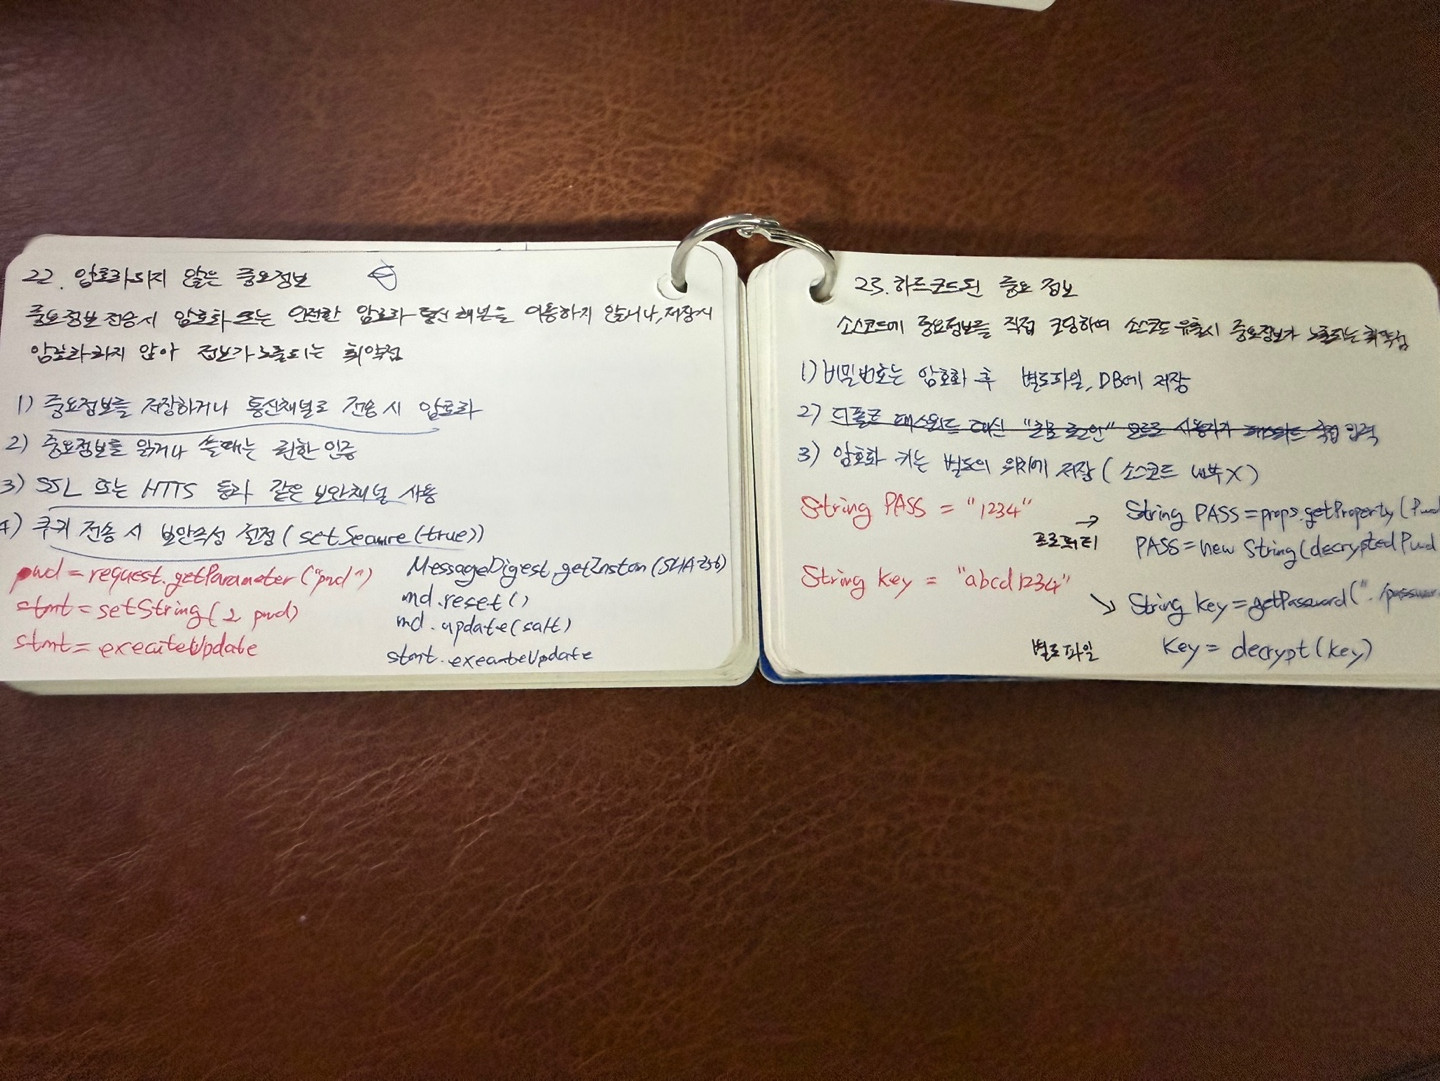 22. 암호화되지 않은 중요정보
중요정보 전송시 암호화 또는 안전한 암호화 통신 채널을 이용하지 않거나, 저장시
암호화하지 않아 정보가 노출되는 취약점
1) 중요정보를 저장하거나 통신채널로 전송 시 암호화
2) 중요정보를 읽거나 쓸때는 권한 인증
3) SSL 또는 HTTS 등과 같은 보안채널 사용
4) 쿠키 전송 시 보안속성 설정 (setSecure(true))
pwd = request.getParameter("pwd")
stmt = setString(2, pwd)
stmt = executeUpdate
MessageDigest.getInstan(SHA256)
md.reset()
md.update(salt)
stmt.executeUpdate
23. 하드코드된 중요 정보
소스코드에 중요정보를 직접 코딩하여 소스코드 유출시 중요정보가 노출되는 취약점
1) 비밀번호는 암호화 후 별도파일, DB에 저장
2) 디폴트 패스워드 대신 "최초 로그인" 모드로 사용자가 패스워드 직접 입력
3) 암호화 키는 별도의 위치에 저장 (소스코드 내부 X)
String PASS = "1234"
→ String PASS = props.getProperty(Pwd
프로퍼티 PASS = new String(decryptedPwd
String key = "abcd1234"
↘ String key = getPassword("./passwor
별도파일 key = decrypt(key)